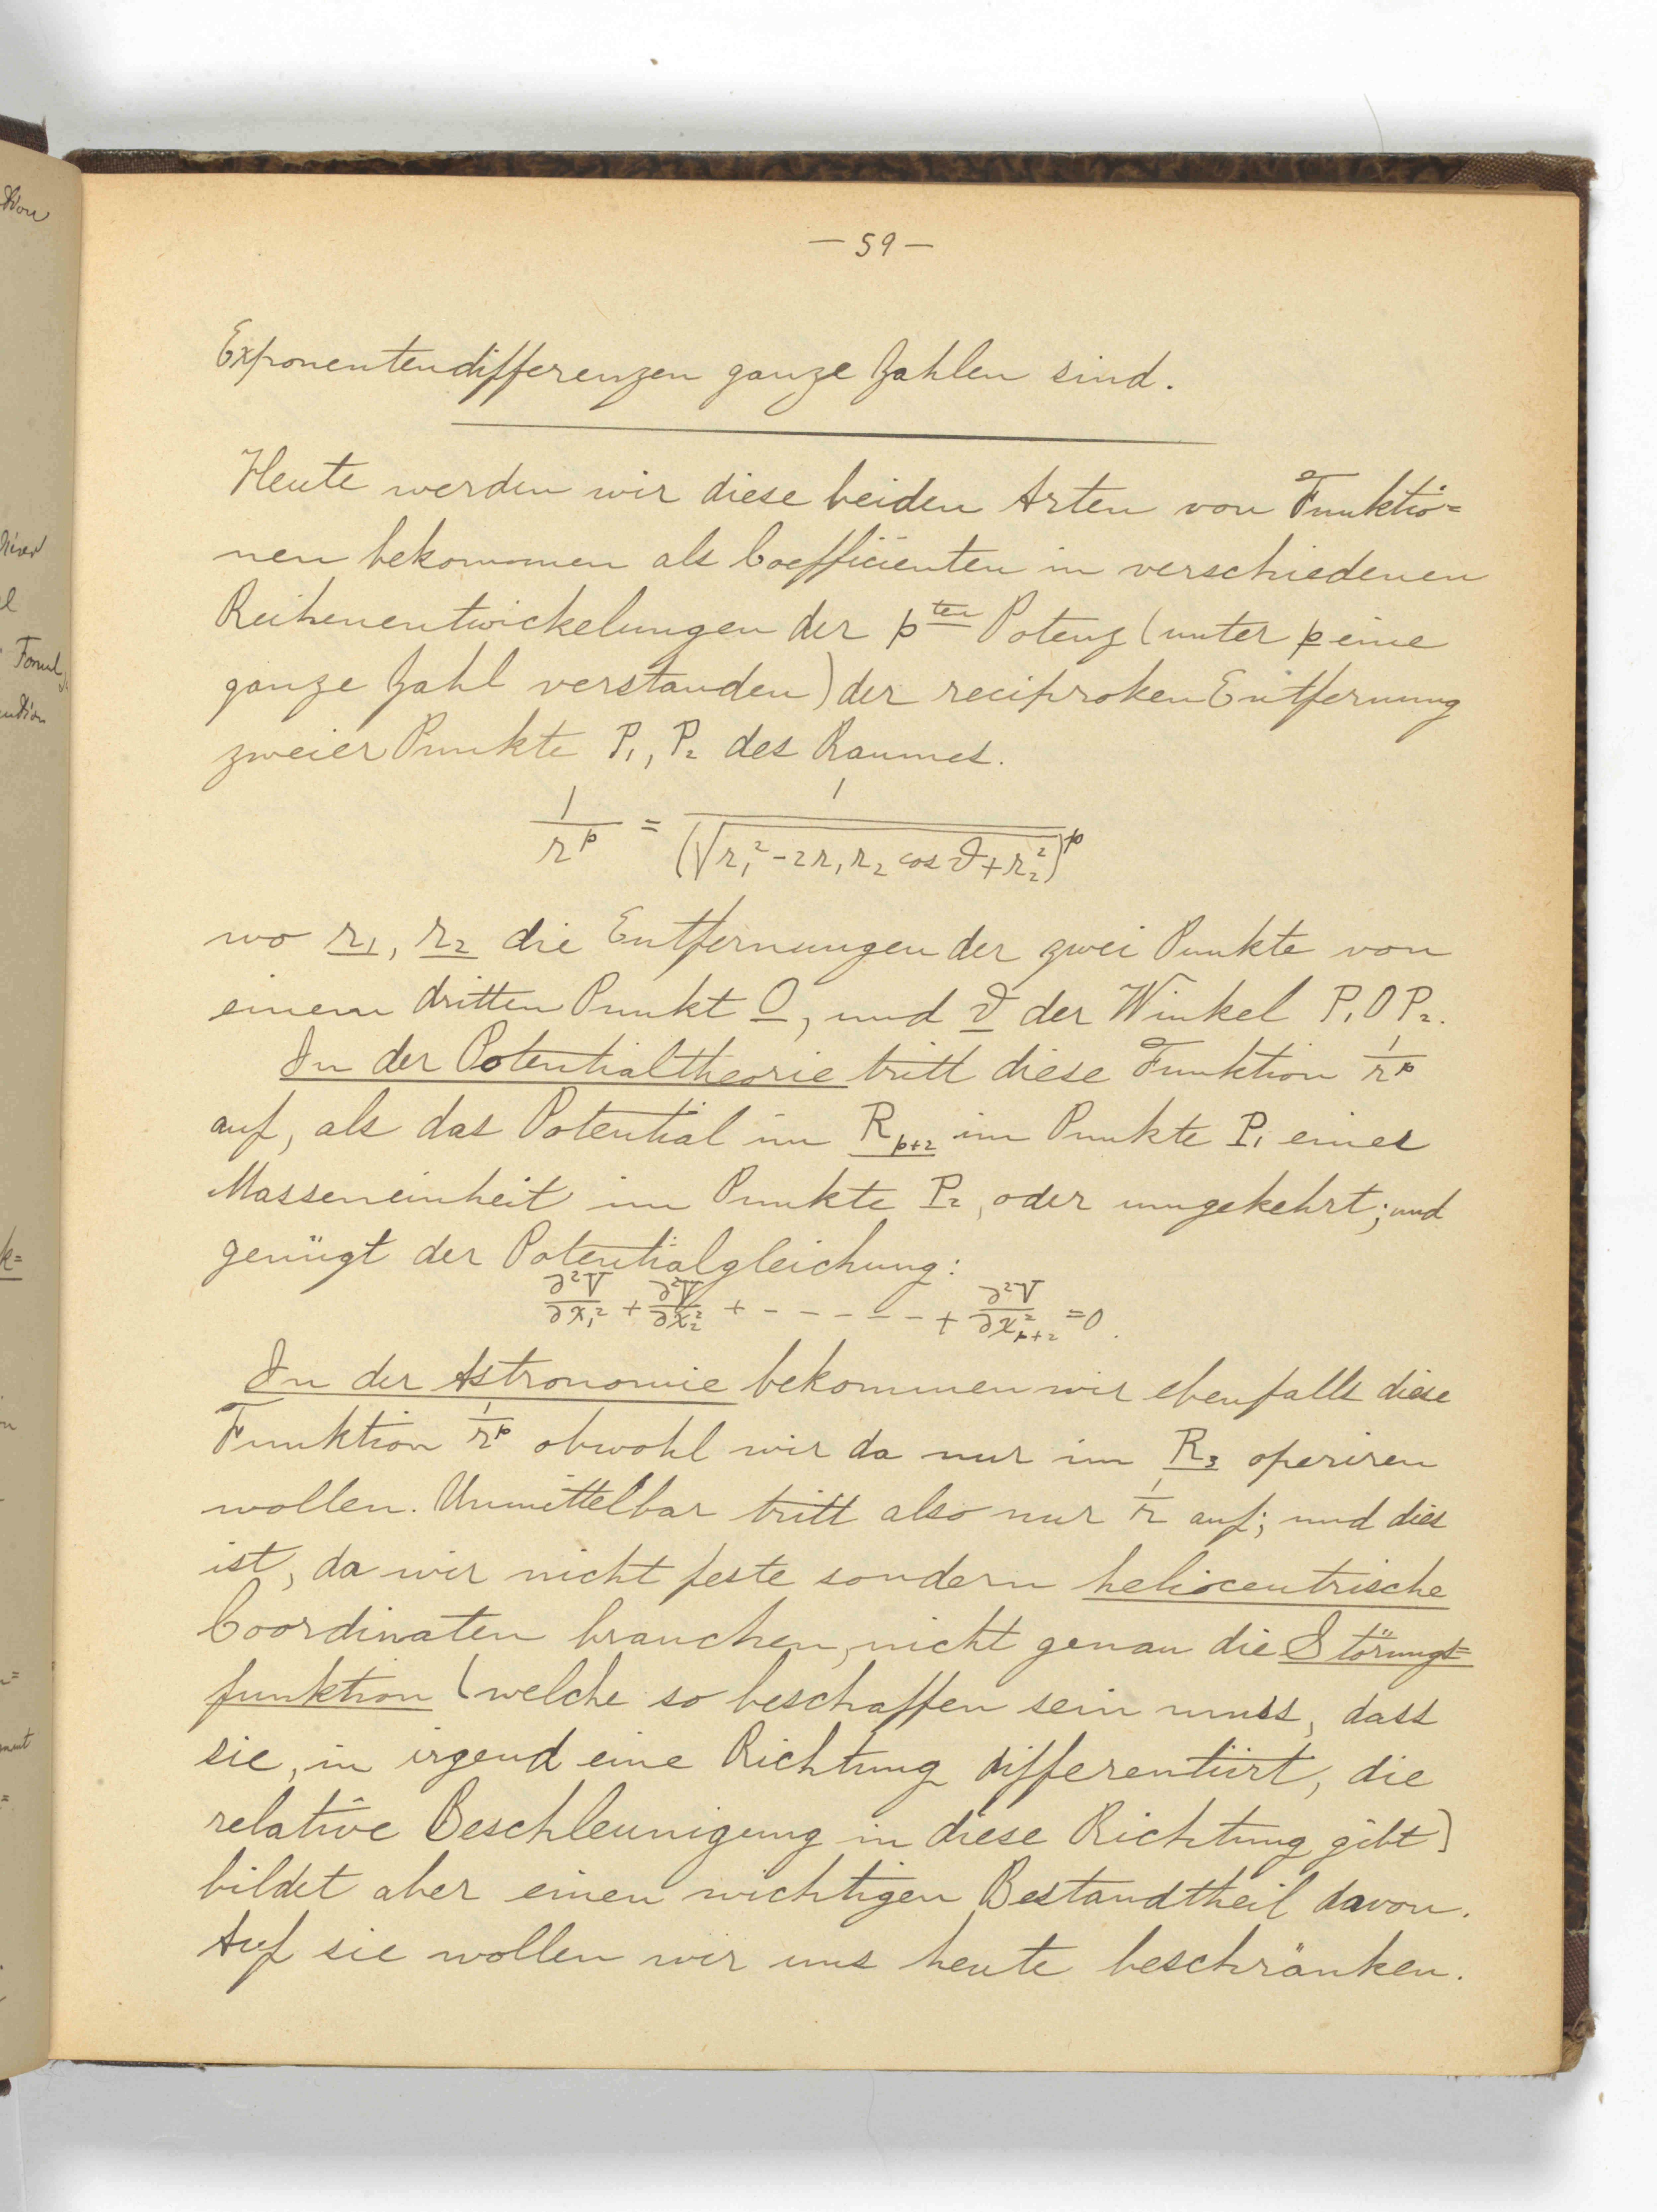 — 59 —
Exponentendifferenzen ganze Zahlen sind.
Heute werden wir diese beiden Arten von Funktio=
nen bekommen als Coefficienten in verschiedenen
Reihenentwickelungen der p^ten Potenz (unter p eine
ganze Zahl verstanden) der reciproken Entfernung
zweier Punkte P₁, P₂ des Raumes.
1/r^p = 1/(√r₁² - 2r₁r₂ cos ϑ + r₂²)^p
wo r₁, r₂ die Entfernungen der zwei Punkte von
einem dritten Punkt O, und ϑ der Winkel P₁OP₂.
In der Potentialtheorie tritt diese Funktion 1/r^p
auf, als das Potential im R_{p+2} im Punkte P₁ einer
Masseneinheit im Punkte P₂, oder umgekehrt; und
genügt der Potentialgleichung:
∂²V/∂x₁² + ∂²V/∂x₂² + - - - - - - + ∂²V/∂x²_{p+2} = 0.
In der Astronomie bekommen wir ebenfalls diese
Funktion 1/r^p obwohl wir da nur im R₃ operiren
wollen. Unmittelbar tritt also nur 1/r auf; und dies
ist, da wir nicht feste sondern heliocentrische
Coordinaten brauchen, nicht genau die Störungs=
funktion (welche so beschaffen sein muss, dass
sie, in irgend eine Richtung differentiirt, die
relative Beschleunigung in diese Richtung gibt)
bildet aber einen wichtigen Bestandtheil davon.
Auf sie wollen wir uns heute beschränken.